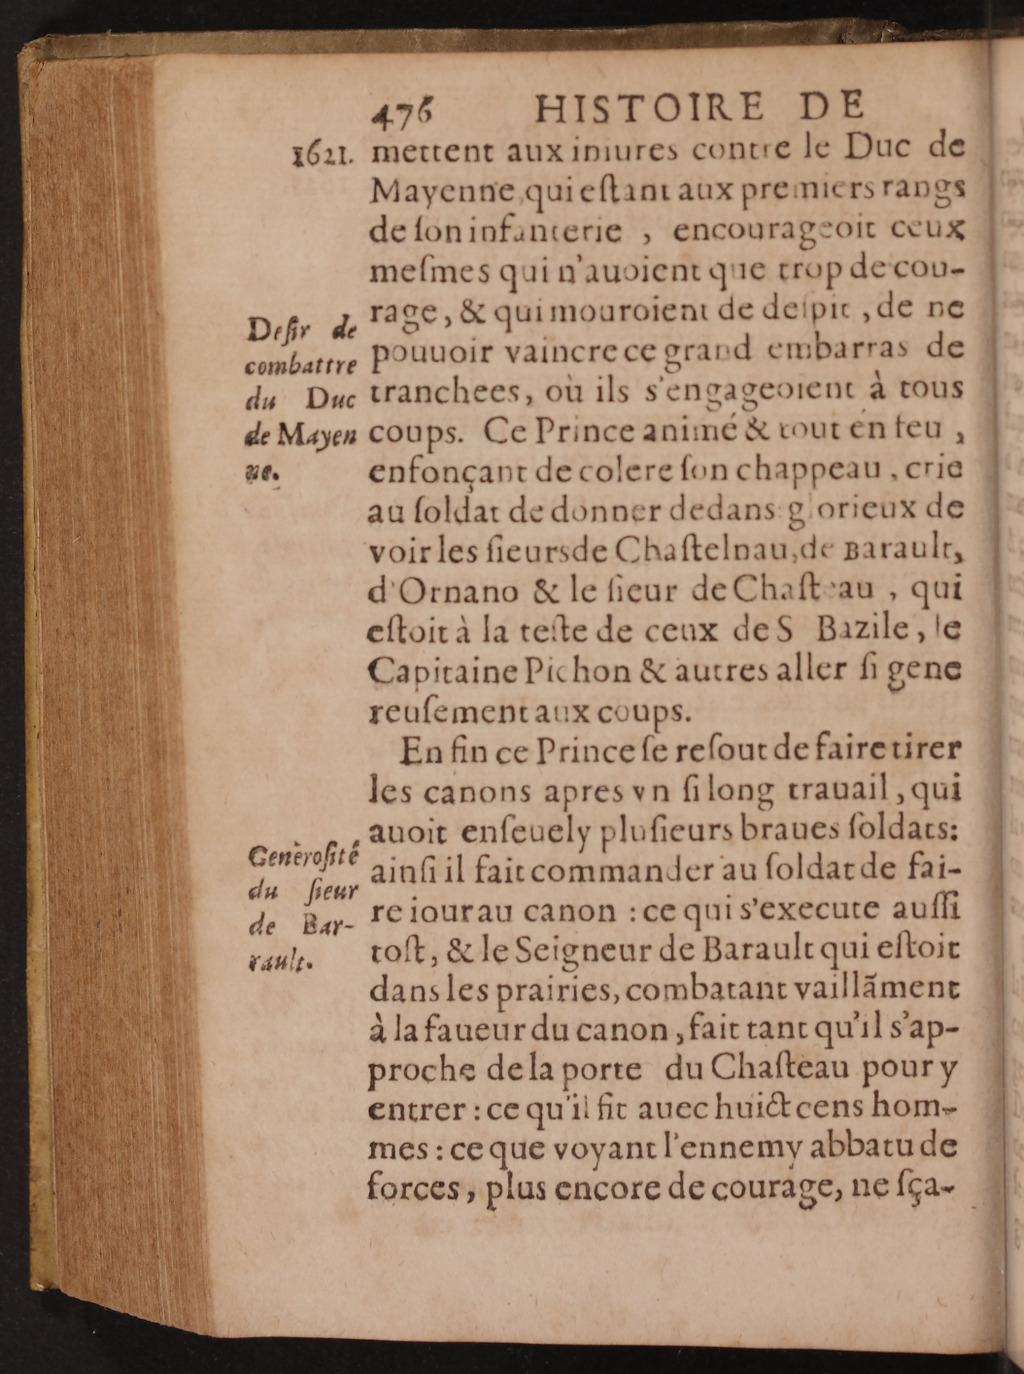 476 HISTOIRE DE
1621. mettent aux iniures contre le Duc de
Mayenne, qui eſtant aux premiers rangs
de ſon infanterie , encourageoit ceux
meſmes qui n'auoient que trop de cou-
rage, & qui mouroient de deſpit , de ne
pouuoir vaincre ce grand embarras de
tranchees, où ils s'engageoient à tous
coups. Ce Prince animé & tout en feu ,
enfonçant de colere ſon chappeau , crie
au ſoldat de donner dedans: glorieux de
voir les ſieurs de Chaſtelnau, de Barault,
d'Ornano & le ſieur de Chaſteau , qui
eſtoit à la teſte de ceux de S Bazile, le
Capitaine Pichon & autres aller ſi gene
reuſement aux coups.
Deſir de
combattre
du Duc
de Mayen
ne.
En fin ce Prince ſe reſout de faire tirer
les canons apres vn ſi long trauail , qui
auoit enſeuely pluſieurs braues ſoldats:
ainſi il fait commander au ſoldat de fai-
re iour au canon : ce qui s'execute auſſi
toſt, & le Seigneur de Barault qui eſtoit
dans les prairies, combatant vaillãment
à la faueur du canon , fait tant qu'il s'ap-
proche de la porte du Chaſteau pour y
entrer : ce qu'il fit auec huict cens hom-
mes : ce que voyant l'ennemy abbatu de
forces, plus encore de courage, ne ſça-
Generoſité
du ſieur
de Bar-
rault.